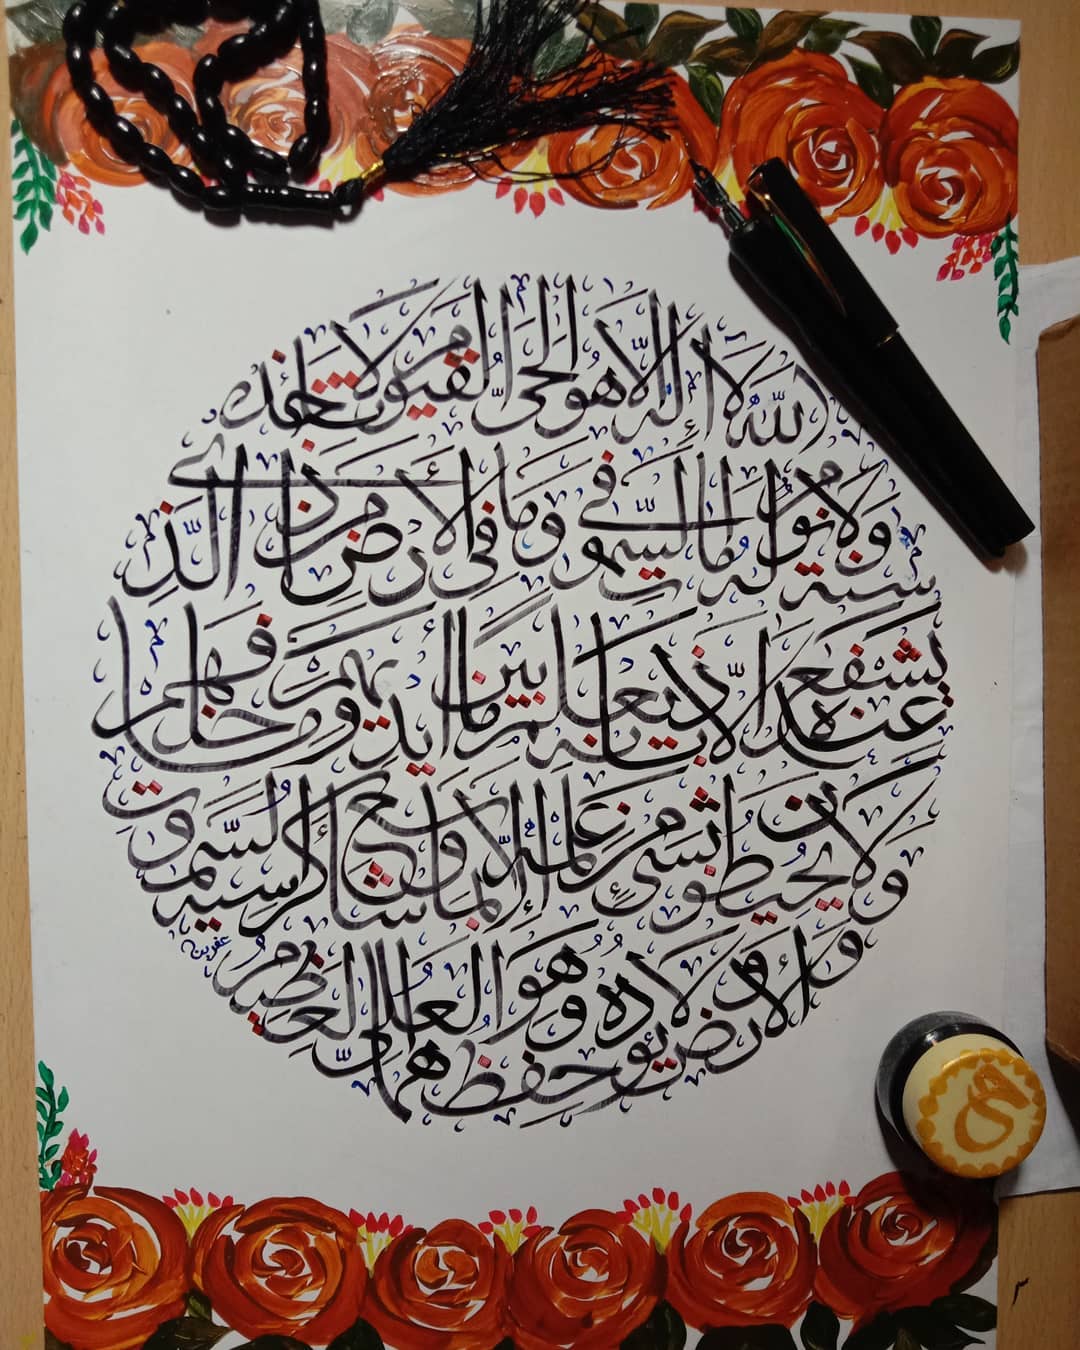 الله لا إله إلا هو الحي القيوم لا تأخذه
سنة ولا نوم له ما في السموت وما في الأرض من ذا الذي
يشفع عنده إلا بإذنه يعلم ما بين أيديهم وما خلفهم
ولا يحيطون بشيء من علمه إلا بما شاء وسع كرسيه السموت
والأرض ولا يؤده حفظهما وهو العلي العظيم